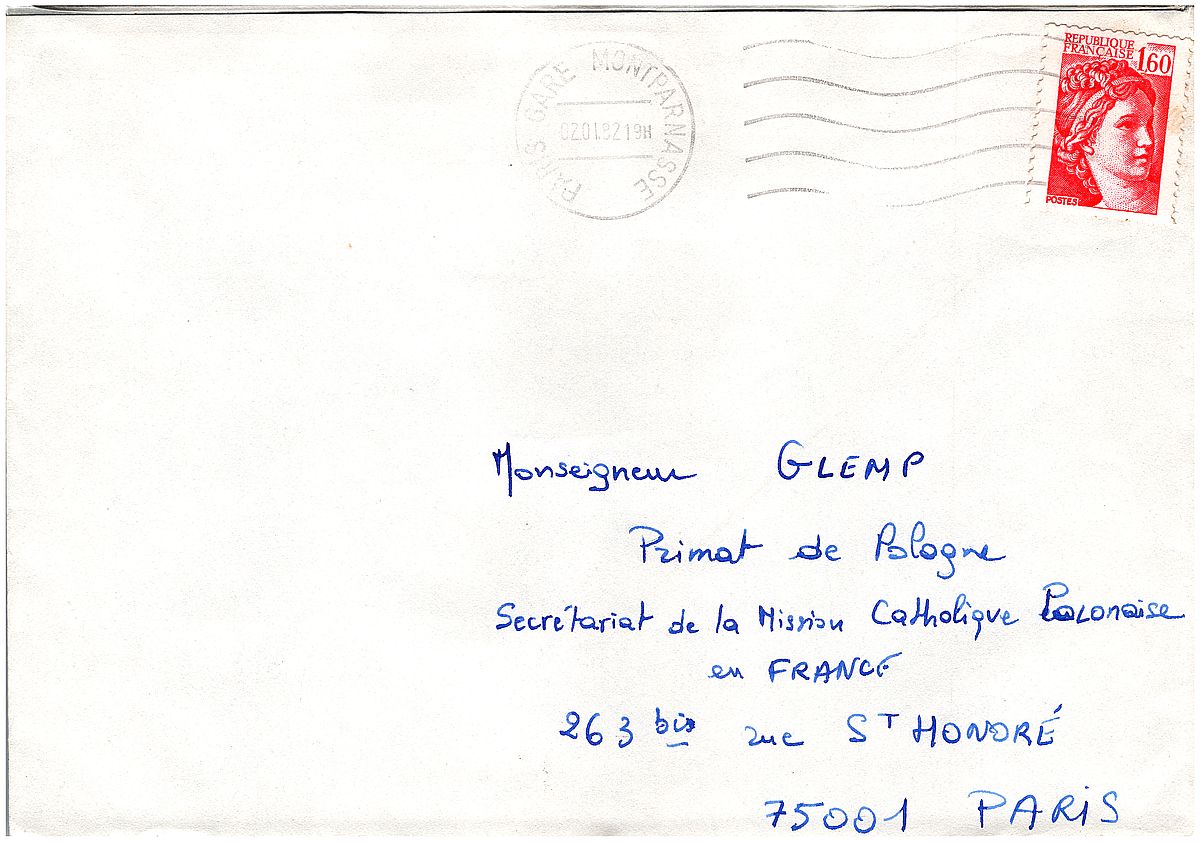 PARIS GARE MONTPARNASSE
02.01.82 19H
REPUBLIQUE
FRANÇAISE 1,60
POSTES
Monseigneur GLEMP
Primat de Pologne
Secrétariat de la Mission Catholique Polonaise
en FRANCE
263 bis rue ST HONORÉ
75001 PARIS